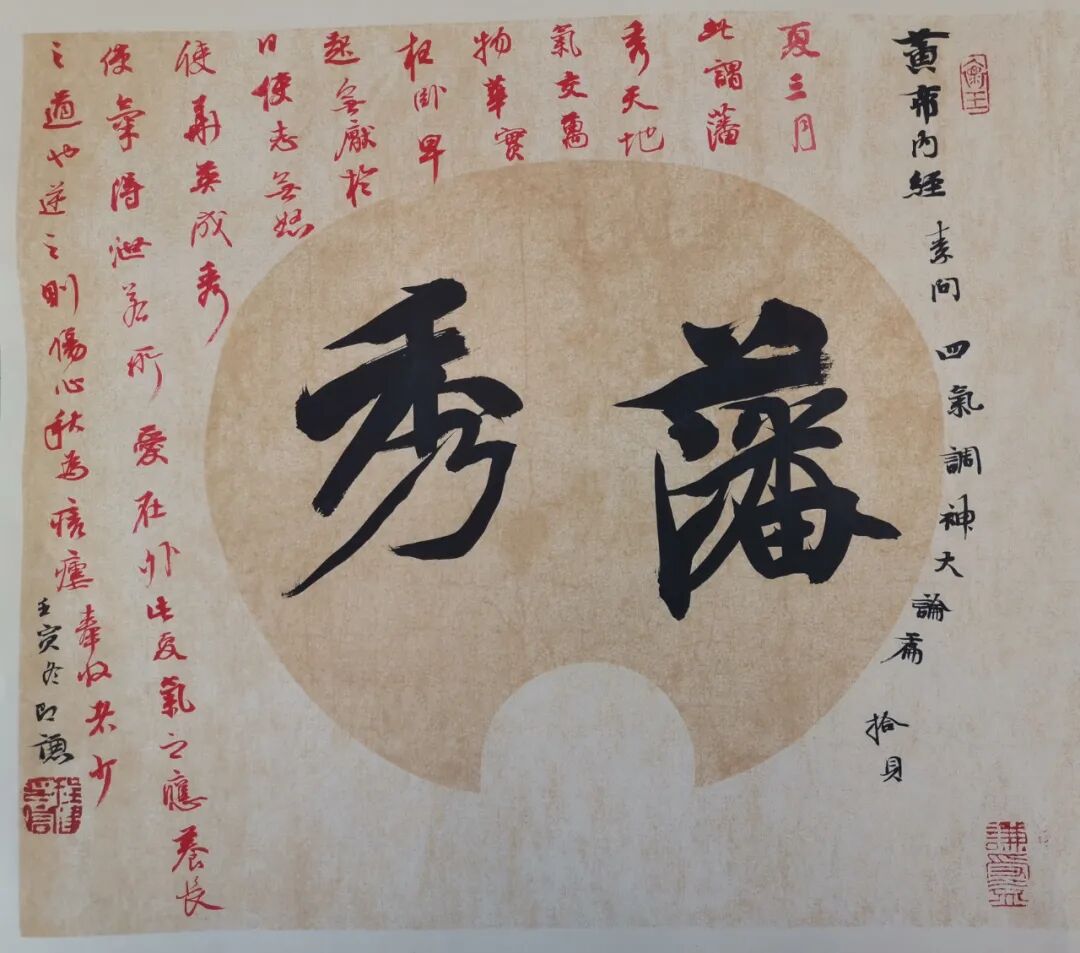 黄帝内経 素问 四氣調神大論篇 拾貝
藩秀
夏三月
此謂藩
秀天地
氣交萬
物華實
夜卧早
起無厭於
日使志無怒
使華英成秀
使氣得泄若所愛在外此夏氣之應養長
之道也逆之則傷心秋為痎瘧奉收者少
壬寅冬即謙
謙受益